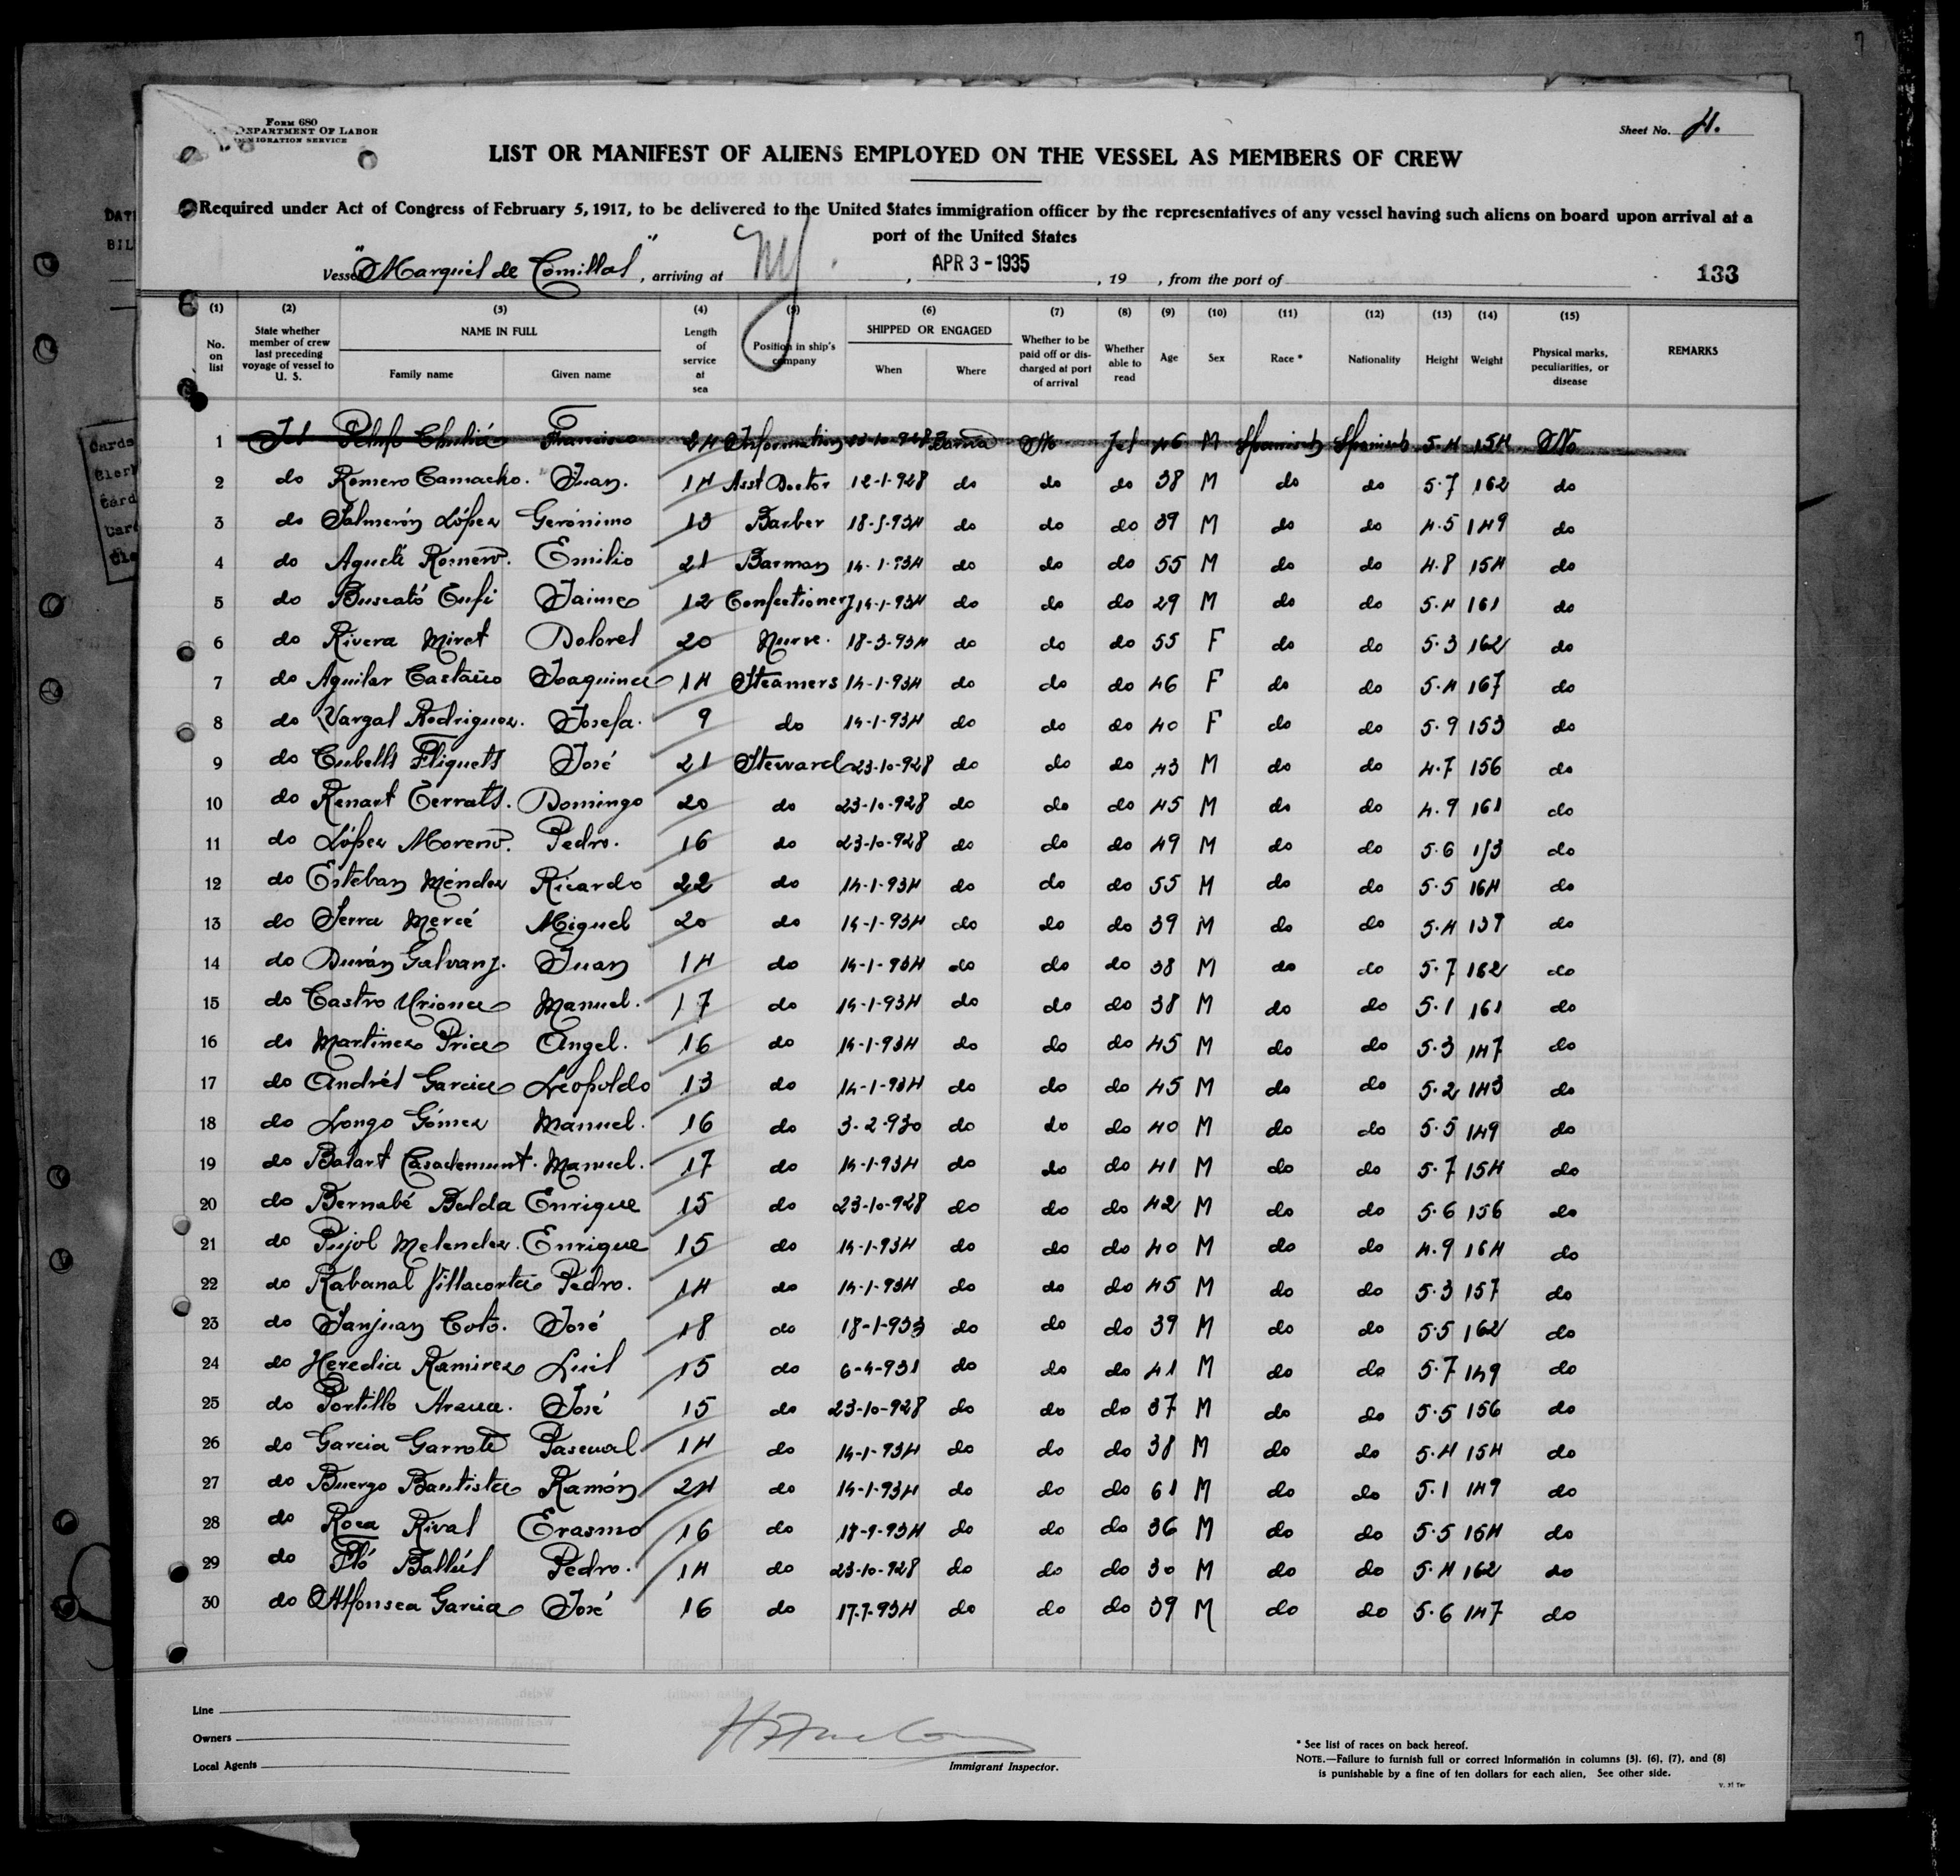 Form 680
DEPARTMENT OF LABOR
IMMIGRATION SERVICE
Sheet No. 4.
LIST OR MANIFEST OF ALIENS EMPLOYED ON THE VESSEL AS MEMBERS OF CREW
Required under Act of Congress of February 5, 1917, to be delivered to the United States immigration officer by the representatives of any vessel having such aliens on board upon arrival at a
port of the United States
Vessel "Marqués de Comillas", arriving at NY. , APR 3 - 1935 , 19 , from the port of 133
(1) (2) (3) (4) (5) (6) (7) (8) (9) (10) (11) (12) (13) (14) (15)
No. on list State whether member of crew last preceding voyage of vessel to U. S. NAME IN FULL Family name Given name Length of service at sea Position in ship's company SHIPPED OR ENGAGED When Where Whether to be paid off or discharged at port of arrival Whether able to read Age Sex Race * Nationality Height Weight Physical marks, peculiarities, or disease REMARKS
1 Yes Chuliá Francisco 24 Information 23-10-928 No Yes 46 M Spanish Spanish 5.4 154 No
2 do Romero Camacho. Juan. 14 Asst Doctor 12-1-928 do do do 38 M do do 5.7 162 do
3 do Salmerón López Gerónimo 13 Barber 18-5-934 do do do 39 M do do 4.5 149 do
4 do Romero. Emilio 21 Barman 14-1-934 do do do 55 M do do 4.8 154 do
5 do Buscató Jaime 12 Confectionery 14-1-934 do do do 29 M do do 5.4 161 do
6 do Rivera Miret Dolores 20 Nurse. 18-3-934 do do do 55 F do do 5.3 162 do
7 do Aguilar Castaño Joaquina 14 Steamers 14-1-934 do do do 46 F do do 5.4 167 do
8 do Vargas Rodriguez. Josefa. 9 do 14-1-934 do do do 40 F do do 5.9 153 do
9 do Cubells Fliquets José 21 Steward 23-10-928 do do do 43 M do do 4.7 156 do
10 do Renart Cerrats. Domingo 20 do 23-10-928 do do do 45 M do do 4.9 161 do
11 do López Moreno. Pedro. 16 do 23-10-928 do do do 49 M do do 5.6 153 do
12 do Esteban Méndez Ricardo 22 do 14-1-934 do do do 55 M do do 5.5 164 do
13 do Serra Mercé Miguel 20 do 14-1-934 do do do 39 M do do 5.4 137 do
14 do Durán Galvany. Juan 14 do 14-1-934 do do do 38 M do do 5.7 162 do
15 do Castro Uriona Manuel. 17 do 14-1-934 do do do 38 M do do 5.1 161 do
16 do Martinez Pria Angel. 16 do 14-1-934 do do do 45 M do do 5.3 147 do
17 do Andrés Garcia Leopoldo 13 do 14-1-934 do do do 45 M do do 5.2 143 do
18 do Longo Gómez Manuel. 16 do 3-2-930 do do do 40 M do do 5.5 149 do
19 do Batart Casademunt. Manuel. 17 do 14-1-934 do do do 41 M do do 5.7 154 do
20 do Bernabé Balda Enrique 15 do 23-10-928 do do do 42 M do do 5.6 156 do
21 do Pujol Melendez. Enrique 15 do 14-1-934 do do do 40 M do do 4.9 164 do
22 do Rabanal Villacorta Pedro. 14 do 14-1-934 do do do 45 M do do 5.3 157 do
23 do Sanjuan Coto. José 18 do 18-1-933 do do do 39 M do do 5.5 162 do
24 do Heredia Ramirez Luis 15 do 6-4-931 do do do 41 M do do 5.7 149 do
25 do Portillo Arana. José 15 do 23-10-928 do do do 37 M do do 5.5 156 do
26 do Garcia Garrote Pascual 14 do 14-1-934 do do do 38 M do do 5.4 154 do
27 do Buergo Bautista Ramón 24 do 14-1-934 do do do 61 M do do 5.1 149 do
28 do Roca Rival Erasmo 16 do 18-9-934 do do do 36 M do do 5.5 154 do
29 do Fló Ballús Pedro. 14 do 23-10-928 do do do 30 M do do 5.4 162 do
30 do Alfonsea Garcia José 16 do 17-7-934 do do do 39 M do do 5.6 147 do
Line
Owners
Local Agents
Immigrant Inspector.
* See list of races on back hereof.
NOTE.—Failure to furnish full or correct information in columns (3), (6), (7), and (8)
is punishable by a fine of ten dollars for each alien, See other side.